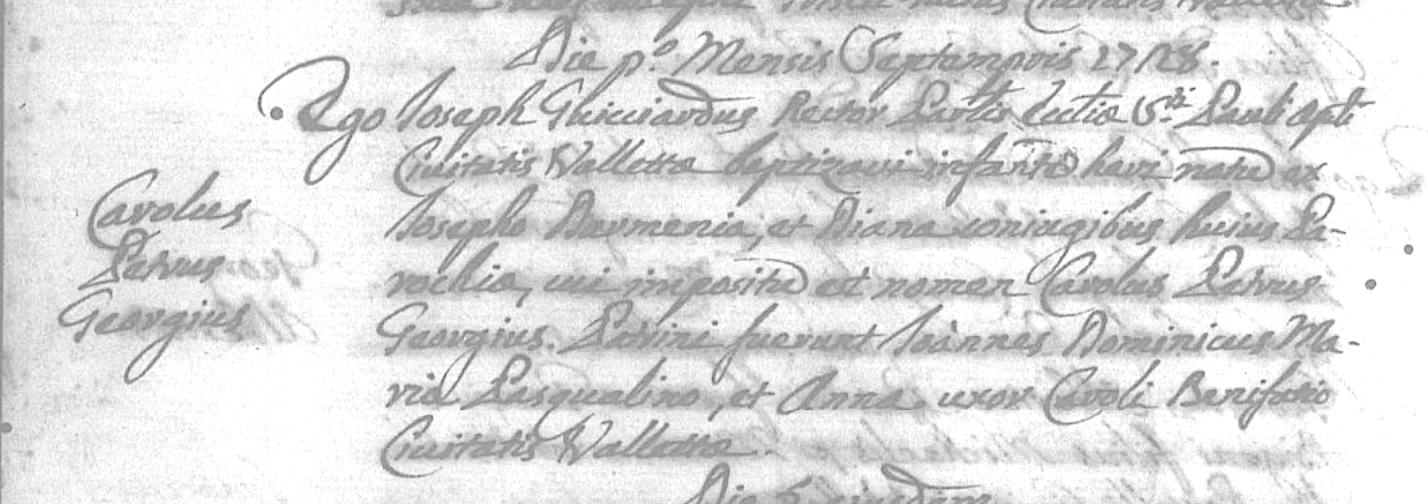 Die p.º Mensis Septempris 1718.
Ego Ioseph Guicciardus Rector Par.lis Ecclíæ S.ti Pauli Apli
Civitatis Vallettæ baptizavi infãnte heri natũ ex
Carolus
Petrus
Georgius
Iosepho Darmenia, et Diana coniugibus huius Pa-
rochiæ, cui impositũ est nomen Carolus Petrus
Georgius. Patrini fuerunt Ioànnes Dominicus Ma-
ria Pasqualino, et Anna uxor Caroli Bonifatio
Civitatis Vallettæ.
Die 5 eiusdem